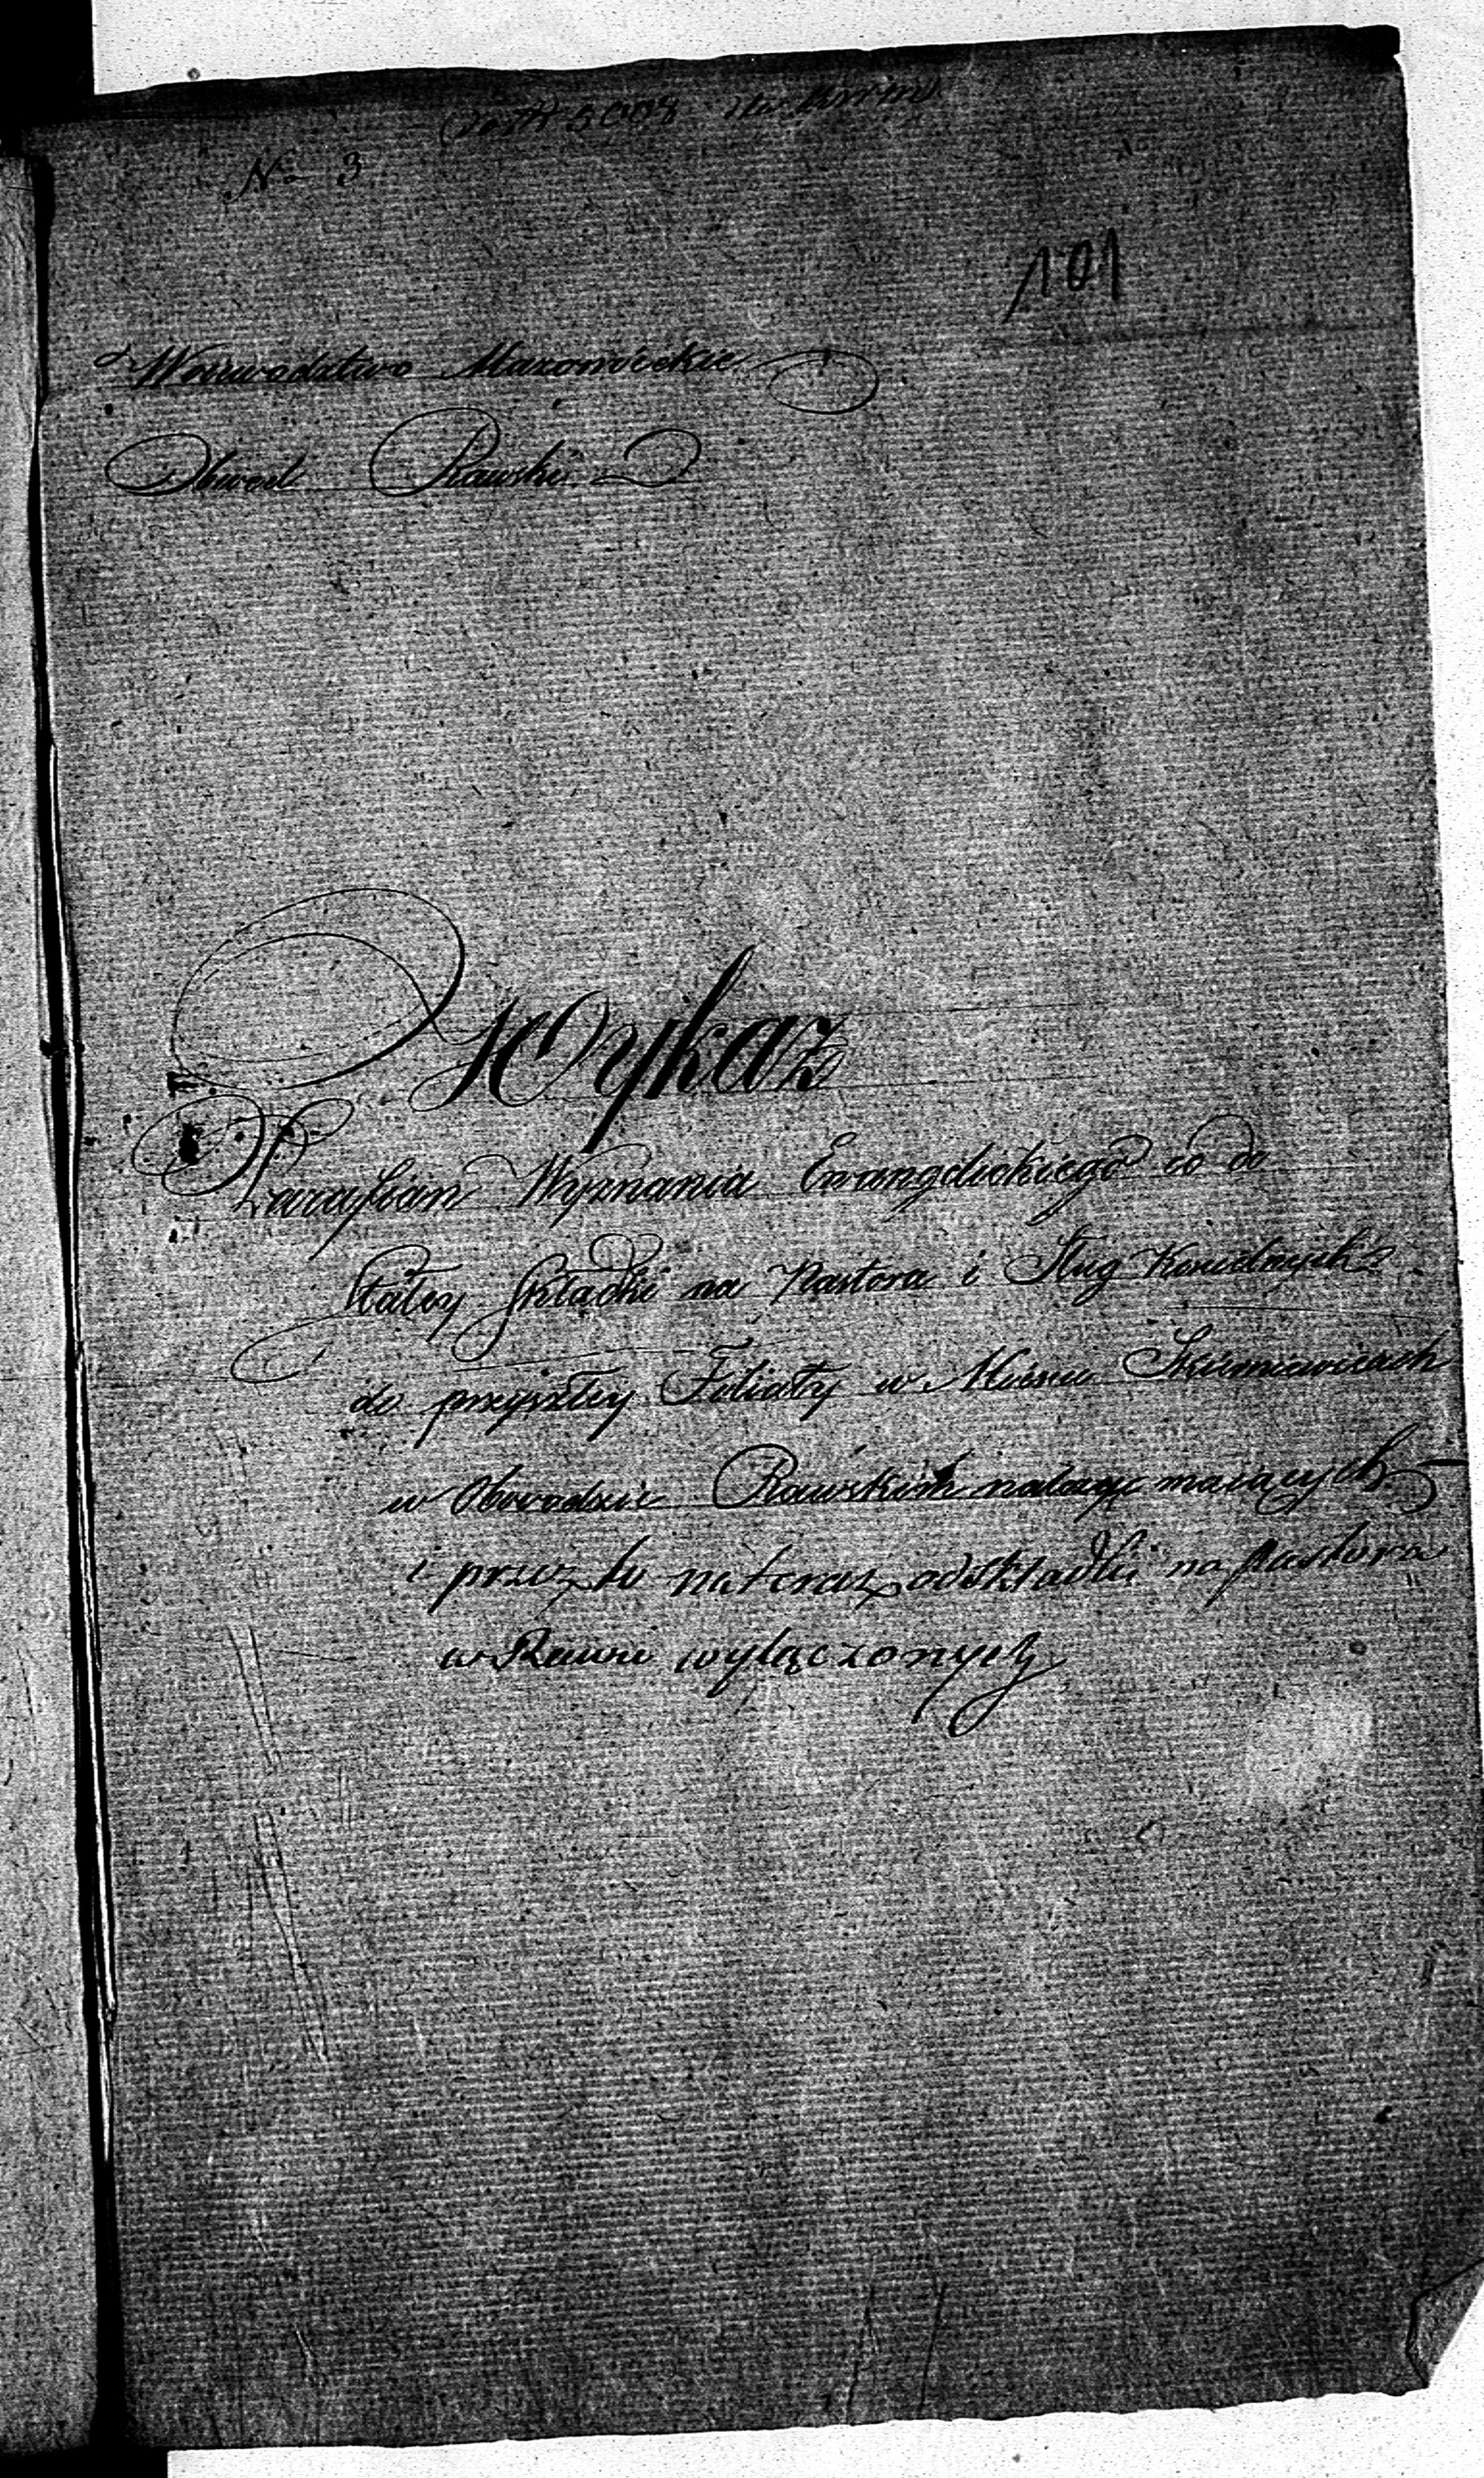 No 3
101
Woiewodztwo Mazowieckie
Obwod Rawski
Wykaz
Parafian Wyznania Ewangelickiego co do
stałey składki na Pastora i Sług Koscielnych
do przyszłey Filiały w Miescie Skierniewicach
w Obwodzie Rawskim należyc maiących
i przez to nateraz od składki na Pastora
w Rawie wyłączonych